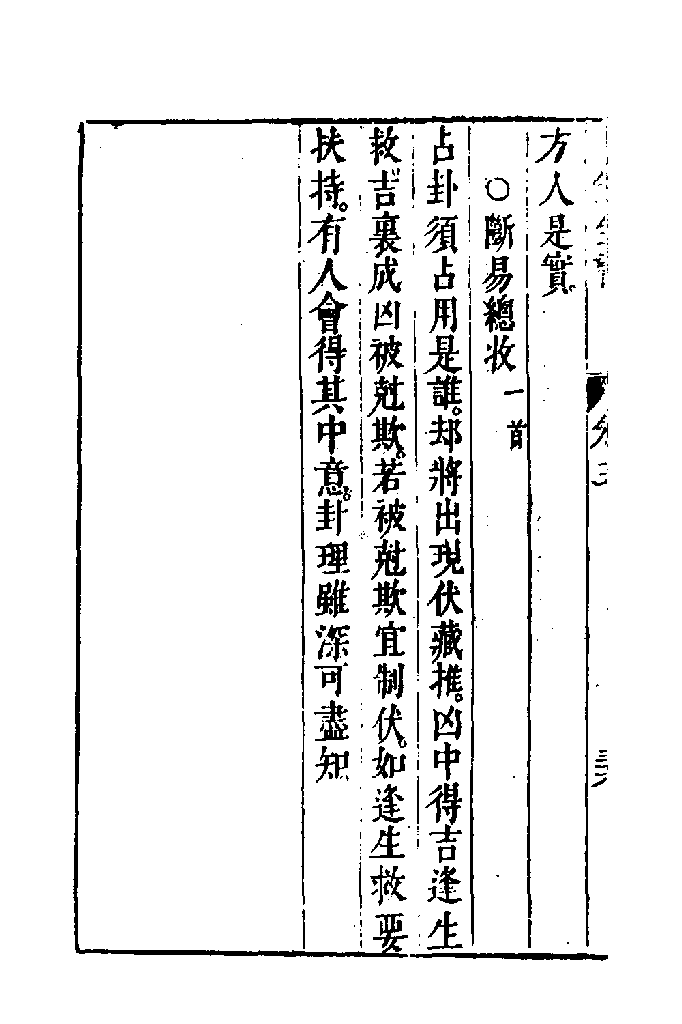 方人是實。
○斷易總收一首
占卦須占用是誰。却將出現伏藏推。凶中得吉逢生
救。吉裏成凶被尅欺。若被尅欺宜制伏。如逢生救要
扶持。有人會得其中意。卦理雖深可盡知